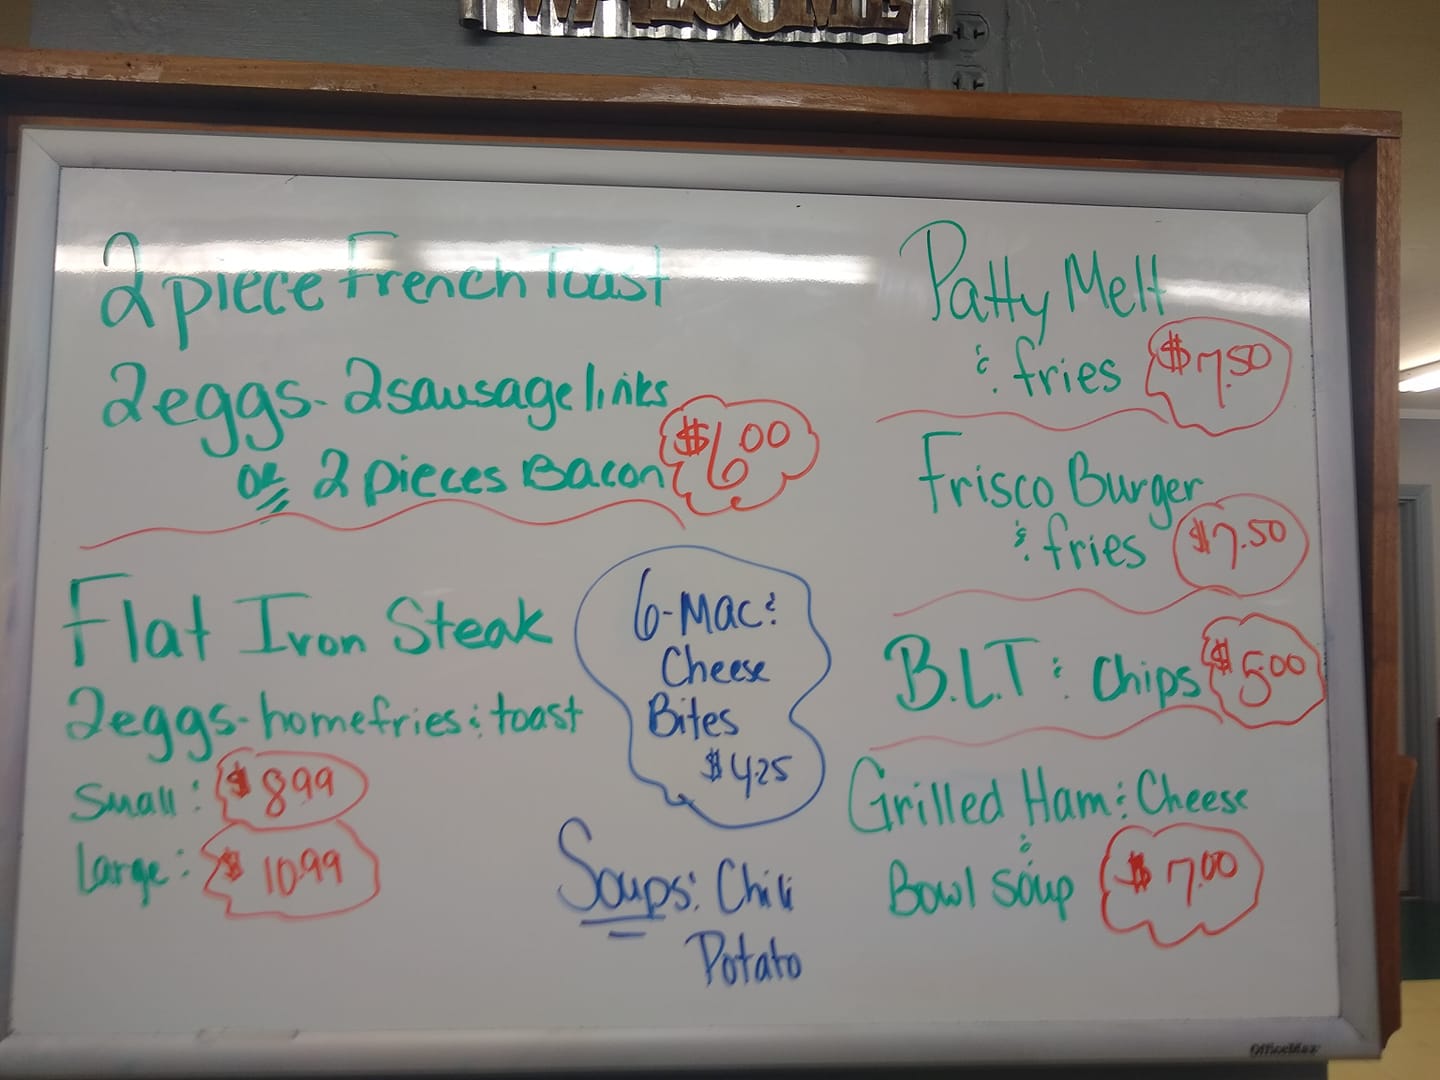 WELCOME
2 piece French Toast
2 eggs - 2 sausage links
OR 2 pieces Bacon $6.00
Flat Iron Steak
2 eggs - homefries & toast
Small: $8.99
Large: $10.99
6 - Mac &
Cheese
Bites
$4.25
Soups: Chili
Potato
Patty Melt
& fries $7.50
Frisco Burger
& fries $7.50
B.L.T & Chips $5.00
Grilled Ham & Cheese
&
Bowl soup $7.00
OfficeMax